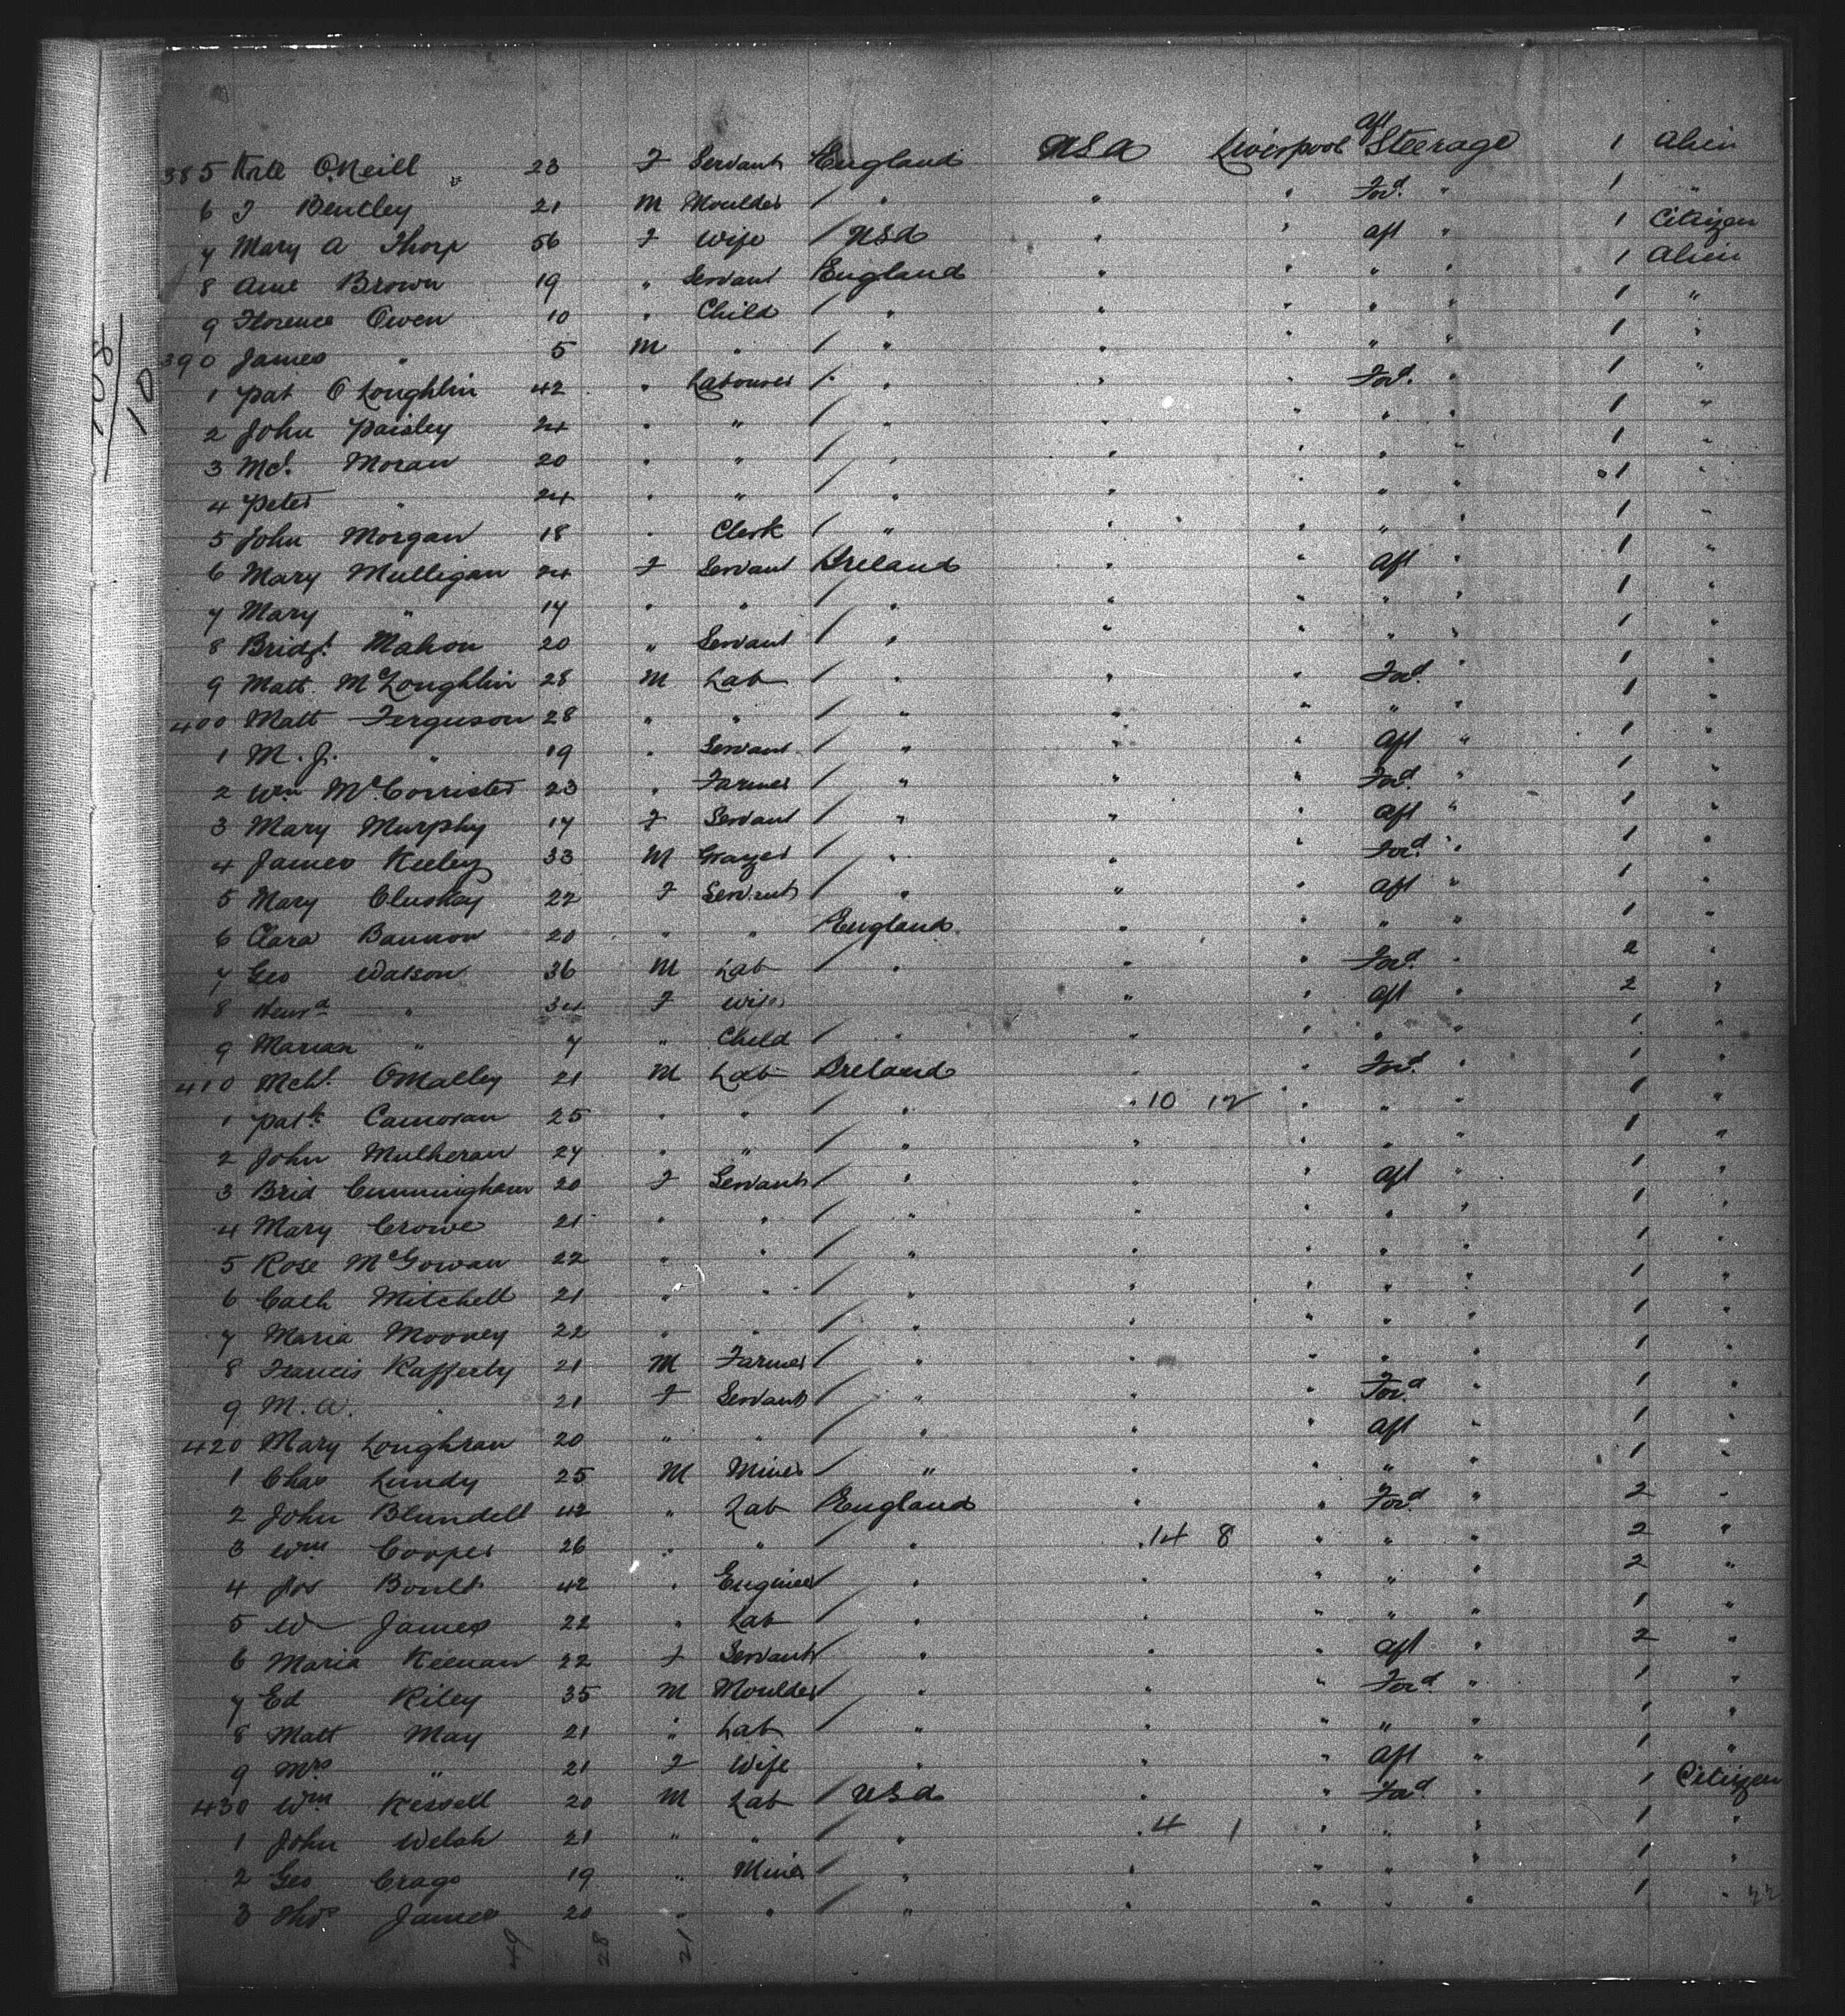 385 Kate O'Neill 23 F Servant England USA Liverpool Aft Steerage 1 Alien
6 J Bentley 21 M Moulder / " " " Ford. " 1 "
7 Mary A Thorp 56 F Wife / USA " " Aft " 1 Citizen
8 Ame Brown 19 " Servant England " " " " 1 Alien
9 Florence Owen 10 " Child / " " " " " 1 "
390 James " 5 M " / " " " " " 1 "
1 Pat O Loughlin 42 " Labourer / " " " Ford. " 1 "
2 John Paisley 24 " " / " " " " " 1 "
3 Mcl. Moran 20 " " / " " " " " 1 "
4 Peter " 24 " " / " " " " " 1 "
5 John Morgan 18 " Clerk / " " " " " 1 "
6 Mary Mulligan 24 F Servant Ireland " " Aft " 1 "
7 Mary " 17 " " / " " " " " 1 "
8 Bridgt. Mahon 20 " Servant / " " " " " 1 "
9 Matt McLoughlin 28 M Lab / " " " Ford. " 1 "
400 Matt Ferguson 28 " " / " " " " " 1 "
1 M. J. " 19 " Servant / " " " Aft " 1 "
2 Wm McCorrister 23 " Farmer / " " " Ford. " 1 "
3 Mary Murphy 17 F Servant / " " " Aft " 1 "
4 James Keeley 33 M Grazer / " " " Ford. " 1 "
5 Mary Cluskay 22 F Servant / " " " Aft " 1 "
6 Clara Bannon 20 " " England " " " " 1 "
7 Geo Watson 36 M Lab / " " " Ford. " 2 "
8 Henrd " 34 F Wife " " Aft " 2 "
9 Marian " 7 " Child / " " " " " 1 "
410 Mchl. OMalley 21 M Lab Ireland " " Ford. " 1 "
1 Patk. Camoran 25 " " / " " 10 12 " " " 1 "
2 John Mulheran 27 " " / " " " " " 1 "
3 Brid Cunningham 20 F Servant / " " " Aft " 1 "
4 Mary Crowe 21 " " / " " " " " 1 "
5 Rose McGowan 22 " " / " " " " " 1 "
6 Cath Mitchell 21 " " / " " " " " 1 "
7 Maria Mooney 22 " " / " " " " " 1 "
8 Francis Rafferty 21 M Farmer / " " " " " 1 "
9 M. A. " 21 F Servant / " " " Ford. " 1 "
420 Mary Loughran 20 " " / " " " Aft " 1 "
1 Chas Lundy 25 M Miner / " " " " " 1 "
2 John Blundell 42 " Lab England " " Ford. " 2 "
3 Wm Cooper 26 " " / " " 14 8 " " " 2 "
4 Jos Boult 42 " Engineer / " " " " " 2 "
5 W James 22 " Lab / " " " " " 1 "
6 Maria Keenan 22 F Servant / " " " Aft " 2 "
7 Ed Riley 35 M Moulder / " " " Ford. " 1 "
8 Matt May 21 " Lab / " " " " " 1 "
9 Mrs " 21 F Wife " " " Aft " 1 "
430 Wm Kesvell 20 M Lab / USA " " Ford. " 1 Citizen
1 John Welsh 21 " " / " " 4 1 " " " 1 "
2 Geo Crago 19 " Miner / " " " " " 1 "
3 Thos James 20 " " / " " " " " 1 " 22
49 28 21